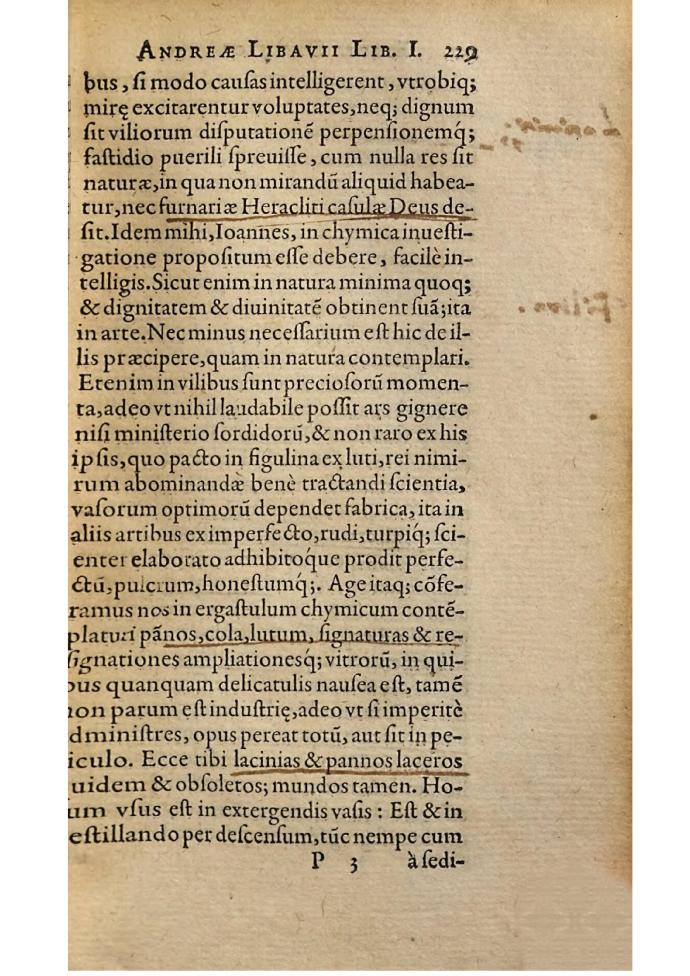 ANDREÆ LIBAVII LIB. I. 229
bus, ſi modo cauſas intelligerent, vtrobiq;
mirę excitarentur voluptates, neq; dignum
ſit viliorum diſputationē perpenſionemq́;
faſtidio puerili ſpreuiſſe, cum nulla res ſit
naturæ, in qua non mirandū aliquid habea-
tur, nec furnariæ Heracliti caſulæ Deus de-
ſit. Idem mihi, Ioannes, in chymica inueſti-
gatione propoſitum eſſe debere, facilè in-
telligis. Sicut enim in natura minima quoq;
& dignitatem & diuinitatē obtinent ſuā; ita
in arte. Nec minus neceſſarium eſt hic de il-
lis præcipere, quam in natura contemplari.
Etenim in vilibus ſunt precioſorū momen-
ta, adeo vt nihil laudabile poſſit ars gignere
niſi miniſterio ſordidorū, & non raro ex his
ipſis, quo pacto in figulina ex luti, rei nimi-
rum abominandæ benè tractandi ſcientia,
vaſorum optimorū dependet fabrica, ita in
aliis artibus ex imperfecto, rudi, turpiq́; ſci-
enter elaborato adhibitoq́ue prodit perfe-
ctū, pulcrum, honeſtumq́;. Age itaq; cōfe-
ramus nos in ergaſtulum chymicum contē-
platuri pānos, cola, lutum, ſignaturas & re-
ſignationes ampliationesq́; vitrorū, in qui-
bus quanquam delicatulis nauſea eſt, tamē
non parum eſt induſtrię, adeo vt ſi imperitè
dminiſtres, opus pereat totū, aut ſit in pe-
iculo. Ecce tibi lacinias & pannos laceros
uidem & obſoletos; mundos tamen. Ho-
um vſus eſt in extergendis vaſis: Eſt & in
eſtillando per deſcenſum, tūc nempe cum
P 3 à ſedi-